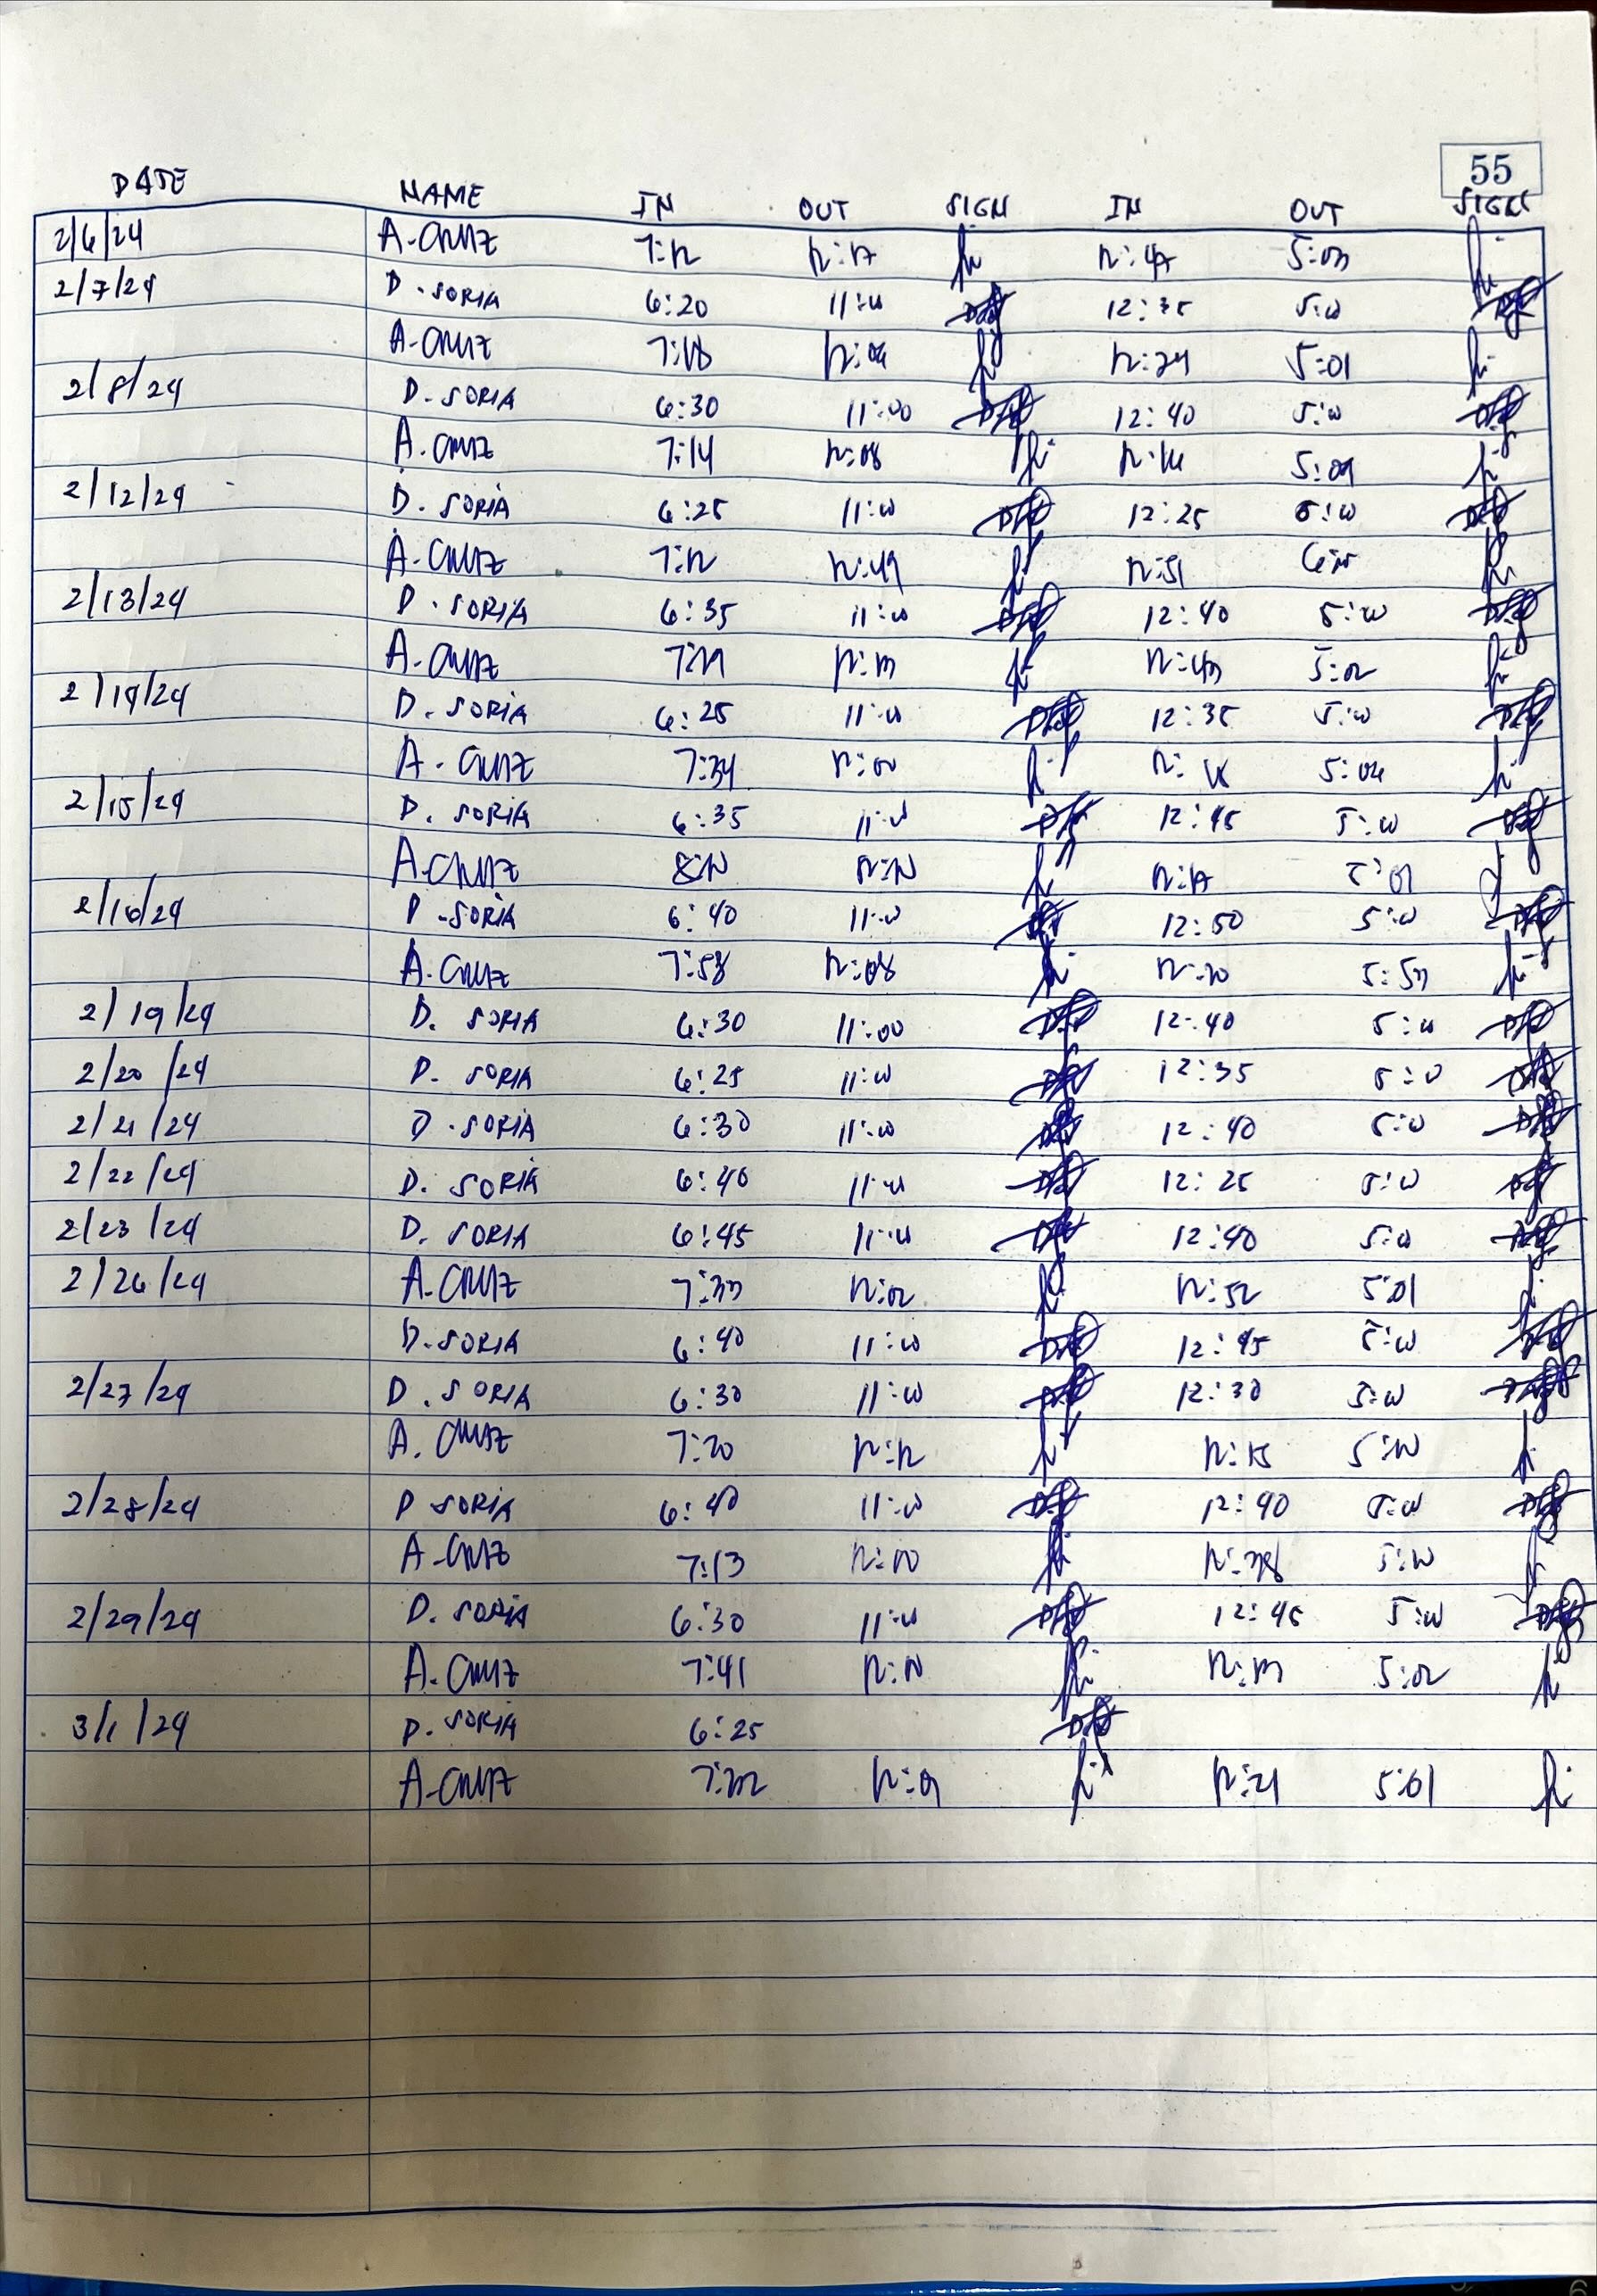 55
DATE NAME IN OUT SIGN IN OUT SIGN
2/6/24 A.CRUZ 7:12 12:17 12:47 5:03
2/7/24 D.SORIA 6:20 11:00 12:35 5:00
A.CRUZ 7:18 12:04 12:24 5:01
2/8/24 D.SORIA 6:30 11:00 12:40 5:00
A.CRUZ 7:14 12:08 12:14
2/12/24 D.SORIA 6:25 11:00 12:25 5:00
A.CRUZ 7:12 12:49 12:51
2/13/24 D.SORIA 6:35 11:00 12:40 5:00
A.CRUZ 12:13 12:43 5:02
2/14/24 D.SORIA 6:25 11:00 12:35 5:00
A.CRUZ 7:34 12:00 5:04
2/15/24 D.SORIA 6:35 11:00 12:45 5:00
A.CRUZ 8:10 12:10 12:17 5:01
2/16/24 D.SORIA 6:40 11:00 12:50 5:00
A.CRUZ 7:58 12:08 12:20 5:53
2/19/24 D.SORIA 6:30 11:00 12:40 5:00
2/20/24 D.SORIA 6:25 11:00 12:35 5:00
2/21/24 D.SORIA 6:30 11:00 12:40 5:00
2/22/24 D.SORIA 6:40 11:00 12:25 5:00
2/23/24 D.SORIA 6:45 11:00 12:40 5:00
2/26/24 A.CRUZ 7:33 12:02 12:52 5:01
D.SORIA 6:40 11:00 12:45 5:00
2/27/24 D.SORIA 6:30 11:00 12:30 5:00
A.CRUZ 7:20 12:12 12:15 5:10
2/28/24 D SORIA 6:40 11:00 12:40 5:00
A.CRUZ 7:13 12:10 12:38 5:10
2/29/24 D.SORIA 6:30 11:00 12:45 5:00
A.CRUZ 7:41 12:10 12:13 5:02
3/1/24 D.SORIA 6:25
A.CRUZ 7:32 12:09 12:21 5:01